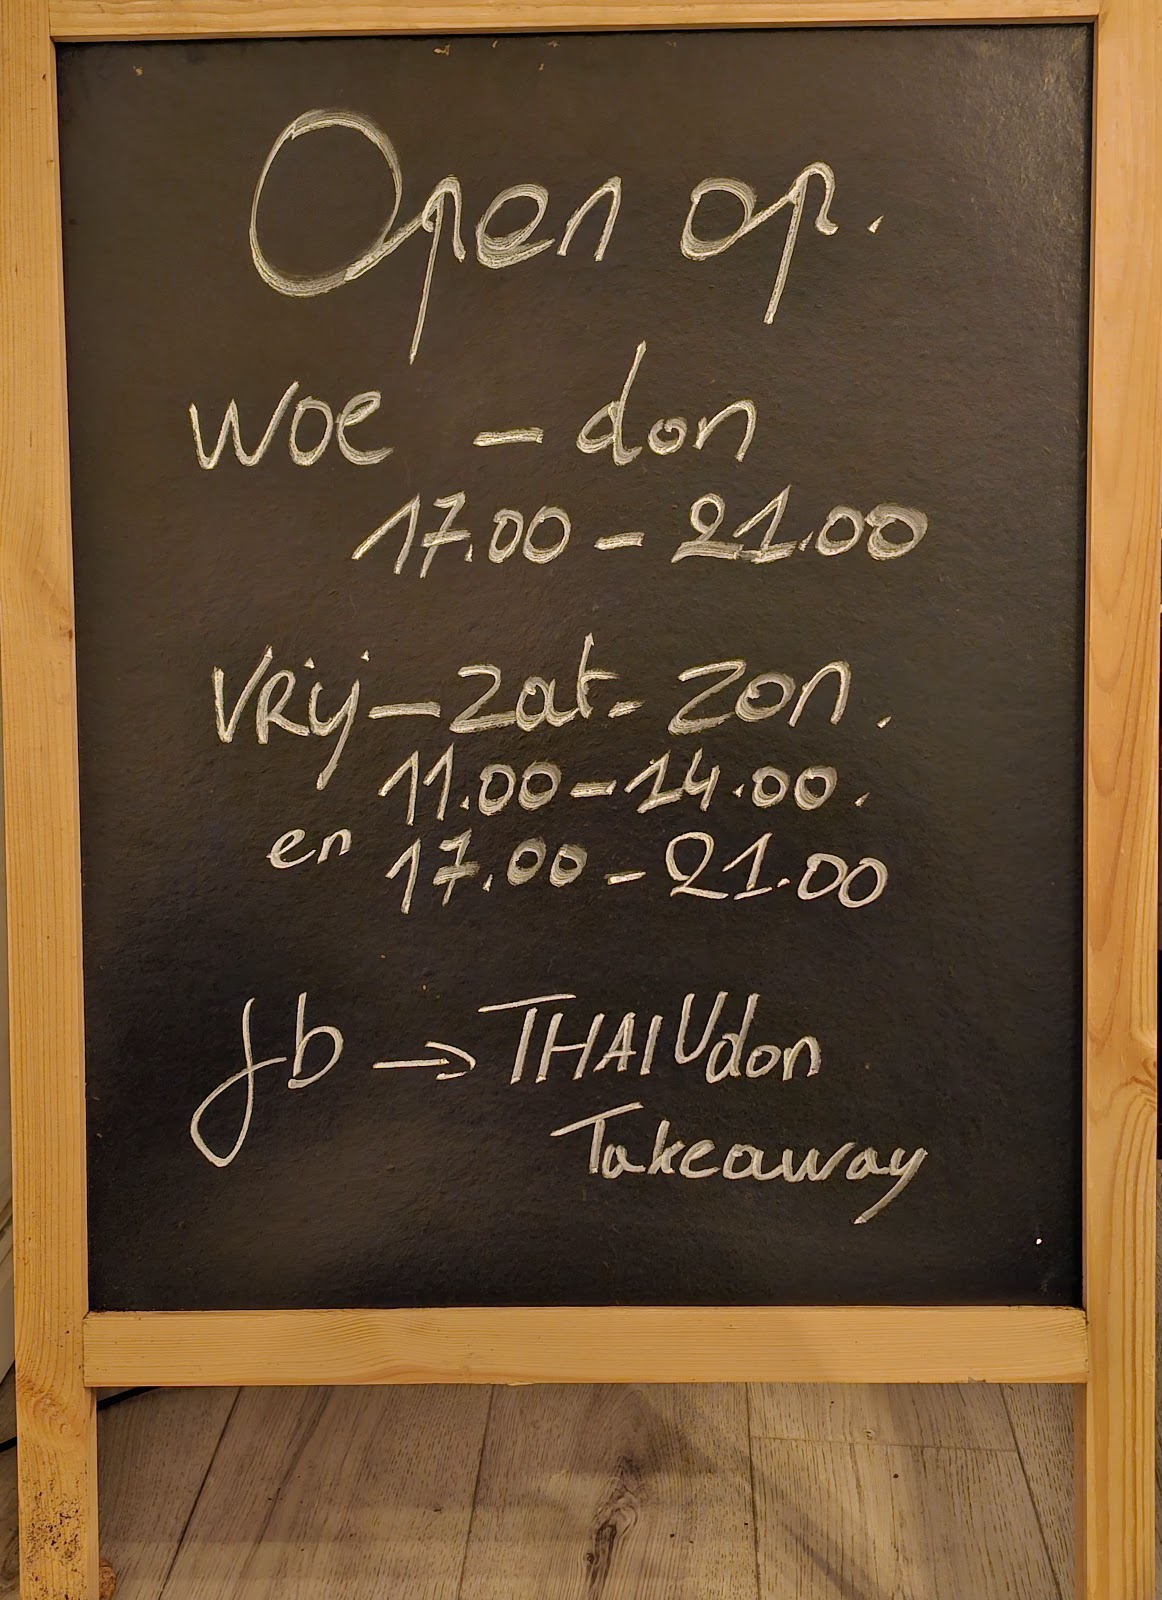 Open op.
woe - don
17.00 - 21.00
vrij - zat - zon.
11.00 - 14.00.
en 17.00 - 21.00
fb → THAI Udon
Takeaway